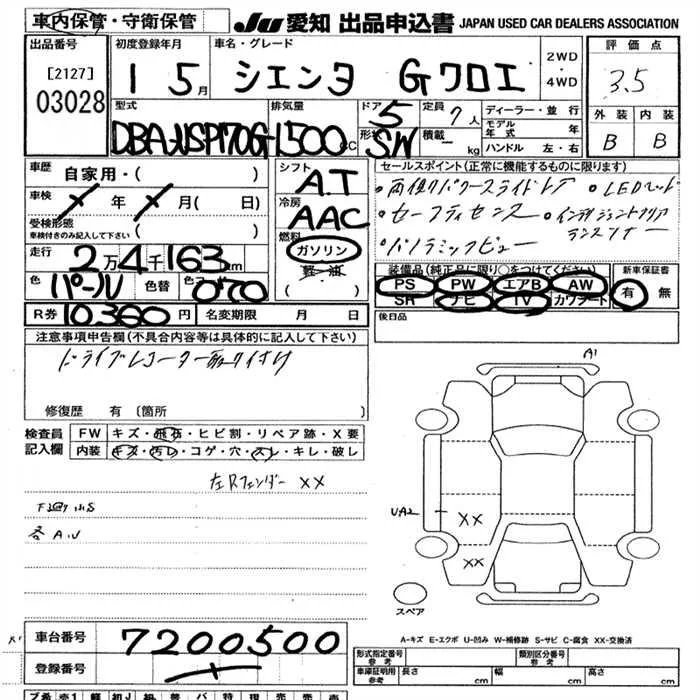 車内保管・守衛保管
JU 愛知 出品申込書 JAPAN USED CAR DEALERS ASSOCIATION
出品番号
[2127]
03028
初度登録年月
1 5月
車名・グレード
シエンタ Gクロエ
2WD
・
4WD
評価点
3.5
外装 内装
B B
型式
DBA-NSP170G
排気量
1500cc
ドア 5
形状 SW
定員 7人
積載 - kg
ディーラー・並行
モデル年式 年
ハンドル 左・右
車歴 自家用・( )
車検 年 月( 日)
受検形態
車検付きのみ記入して下さい ( )
走行 2万4千163km
色 パール 色替 色コード 070
R券 10,360円 名変期限 月 日
シフト
A.T
冷房
AAC
燃料
ガソリン
軽・油
( )
セールスポイント(正常に機能するものに限ります)
・両側パワースライドドア ・LEDヘッド
・セーフティセンス ・インテリジェントクリアランスソナー
・パノラミックビュー
装備品(純正品に限り○をつけてください)
PS PW エアB AW
SR ナビ TV カワシート
新車保証書
有 無
後日品
注意事項申告欄(不具合内容等は具体的に記入して下さい)
ドライブレコーター取り付け
修復歴 有〔箇所 〕
検査員記入欄
FW キズ・飛石・ヒビ割・リペア跡・X要
内装 キズ・汚レ・コゲ・穴・スレ・キレ・破レ
左Rフェンダー XX
下廻りサビ
各A.U
A1
UA2
XX
XX
スペア
A-キズ E-エクボ U-凹み W-補修跡 S-サビ C-腐食 XX-交換済
車台番号 7200500
登録番号
形式指定番号 参考
類別区分番号 参考
車庫証明用 参考 長さ cm 幅 cm 高さ cm